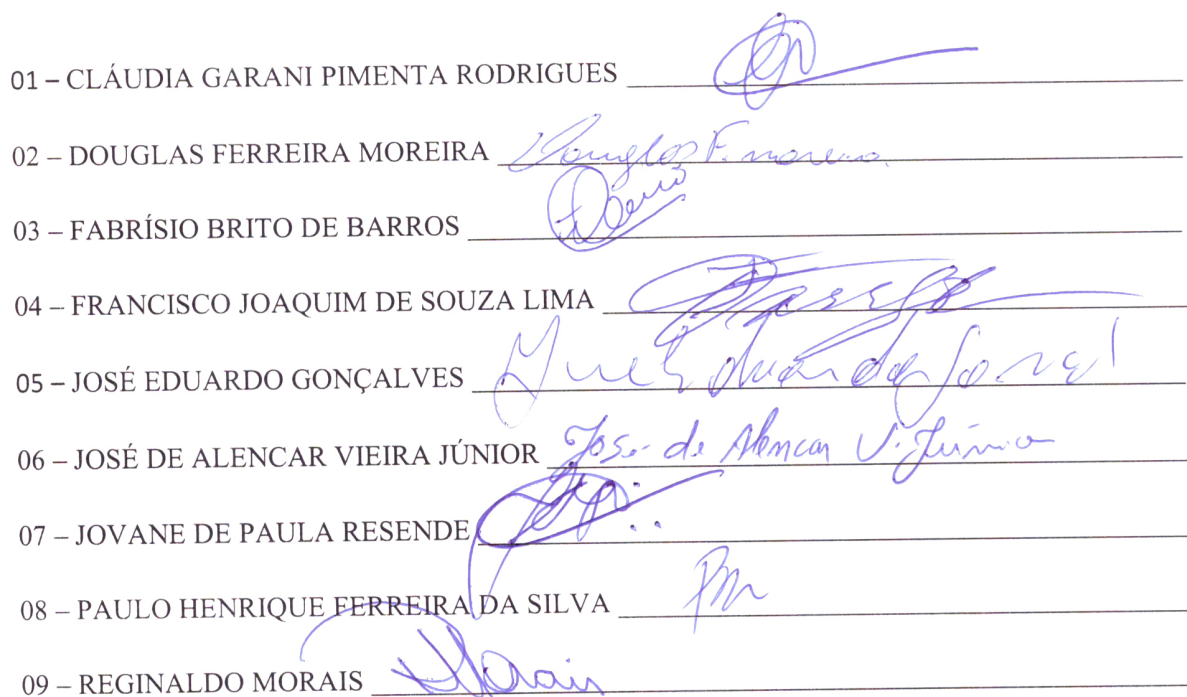 01 – CLÁUDIA GARANI PIMENTA RODRIGUES
02 – DOUGLAS FERREIRA MOREIRA Douglas F. moreira
03 – FABRÍSIO BRITO DE BARROS
04 – FRANCISCO JOAQUIM DE SOUZA LIMA
05 – JOSÉ EDUARDO GONÇALVES
06 – JOSÉ DE ALENCAR VIEIRA JÚNIOR José de Alencar V. Júnior
07 – JOVANE DE PAULA RESENDE
08 – PAULO HENRIQUE FERREIRA DA SILVA
09 – REGINALDO MORAIS Morais